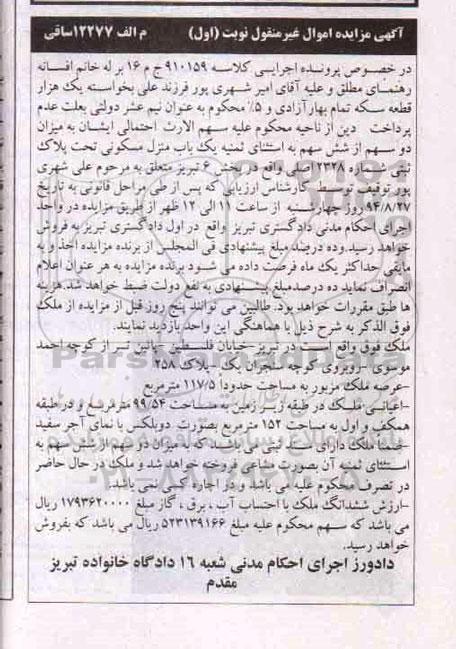 آگهی مزایده اموال غیرمنقول نوبت (اول) م الف ۱۲۲۷۷ساقی
در خصوص پرونده اجرایی کلاسه ۹۱۰۱۵۹ج م ۱۶ بر له خانم افسانه
رهنمای مطلق و علیه آقای امیر شهری پور فرزند علی بخواسته یک هزار
قطعه سکه تمام بهار آزادی و ۵٪ محکوم به عنوان نیم عشر دولتی بعلت عدم
پرداخت دین از ناحیه محکوم علیه سهم الارث احتمالی ایشان به میزان
دو سهم از شش سهم به استثنای ثمنیه یک باب منزل مسکونی تحت پلاک
ثبتی شماره ۲۳۲۸ اصلی واقع در بخش ۶ تبریز متعلق به مرحوم علی شهری
پور توقیف توسط کارشناس ارزیابی که پس از طی مراحل قانونی به تاریخ
۹۴/۸/۲۷ روز چهارشنبه از ساعت ۱۱ الی ۱۲ ظهر از طریق مزایده در واحد
اجرای احکام مدنی دادگستری تبریز واقع در اول دادگستری تبریز به فروش
خواهد رسید.وده درصد مبلغ پیشنهادی فی المجلس از برنده مزایده اخذ و به
مابقی حداکثر یک ماه فرصت داده می شود برنده مزایده به هر عنوان اعلام
انصراف نماید ده درصدمبلغ پیشنهادی به نفع دولت ضبط خواهد شد.هزینه
ها طبق مقررات خواهد بود. طالبین می توانند پنج روز قبل از مزایده از ملک
فوق الذکر به شرح ذیل با هماهنگی این واحد بازدید نمایند.
ملک فوق واقع است در تبریز-خیابان فلسطین پائین تر از کوچه احمد
موسوی -روبروی کوچه سنجران یک -پلاک ۲۵۸
-عرصه ملک مزبور به مساحت حدودا ۱۱۷/۵ مترمربع
-اعیانی ملک در طبقه زیر زمین به مساحت ۹۹/۵۴ مترمربع و در طبقه
همکف و اول به مساحت ۱۵۲ مترمربع بصورت دوبلکس با نمای آجر سفید
ضمنا ملک دارای سند ثبتی می باشد که به میزان دو سهم از شش سهم به
استثنای ثمنیه آن بصورت مشاعی فروخته خواهد شد و ملک در حال حاضر
در تصرف محکوم علیه می باشد و در اجاره کسی نمی باشد.
-ارزش ششدانگ ملک با احتساب آب ، برق ، گاز مبلغ ۱۷۹۳۶۲۰۰۰۰ ریال
می باشد که سهم محکوم علیه مبلغ ۵۲۳۱۳۹۱۶۶ ریال می باشد که بفروش
خواهد رسید.
دادورز اجرای احکام مدنی شعبه ۱۶ دادگاه خانواده تبریز
مقدم
ParsNamadData